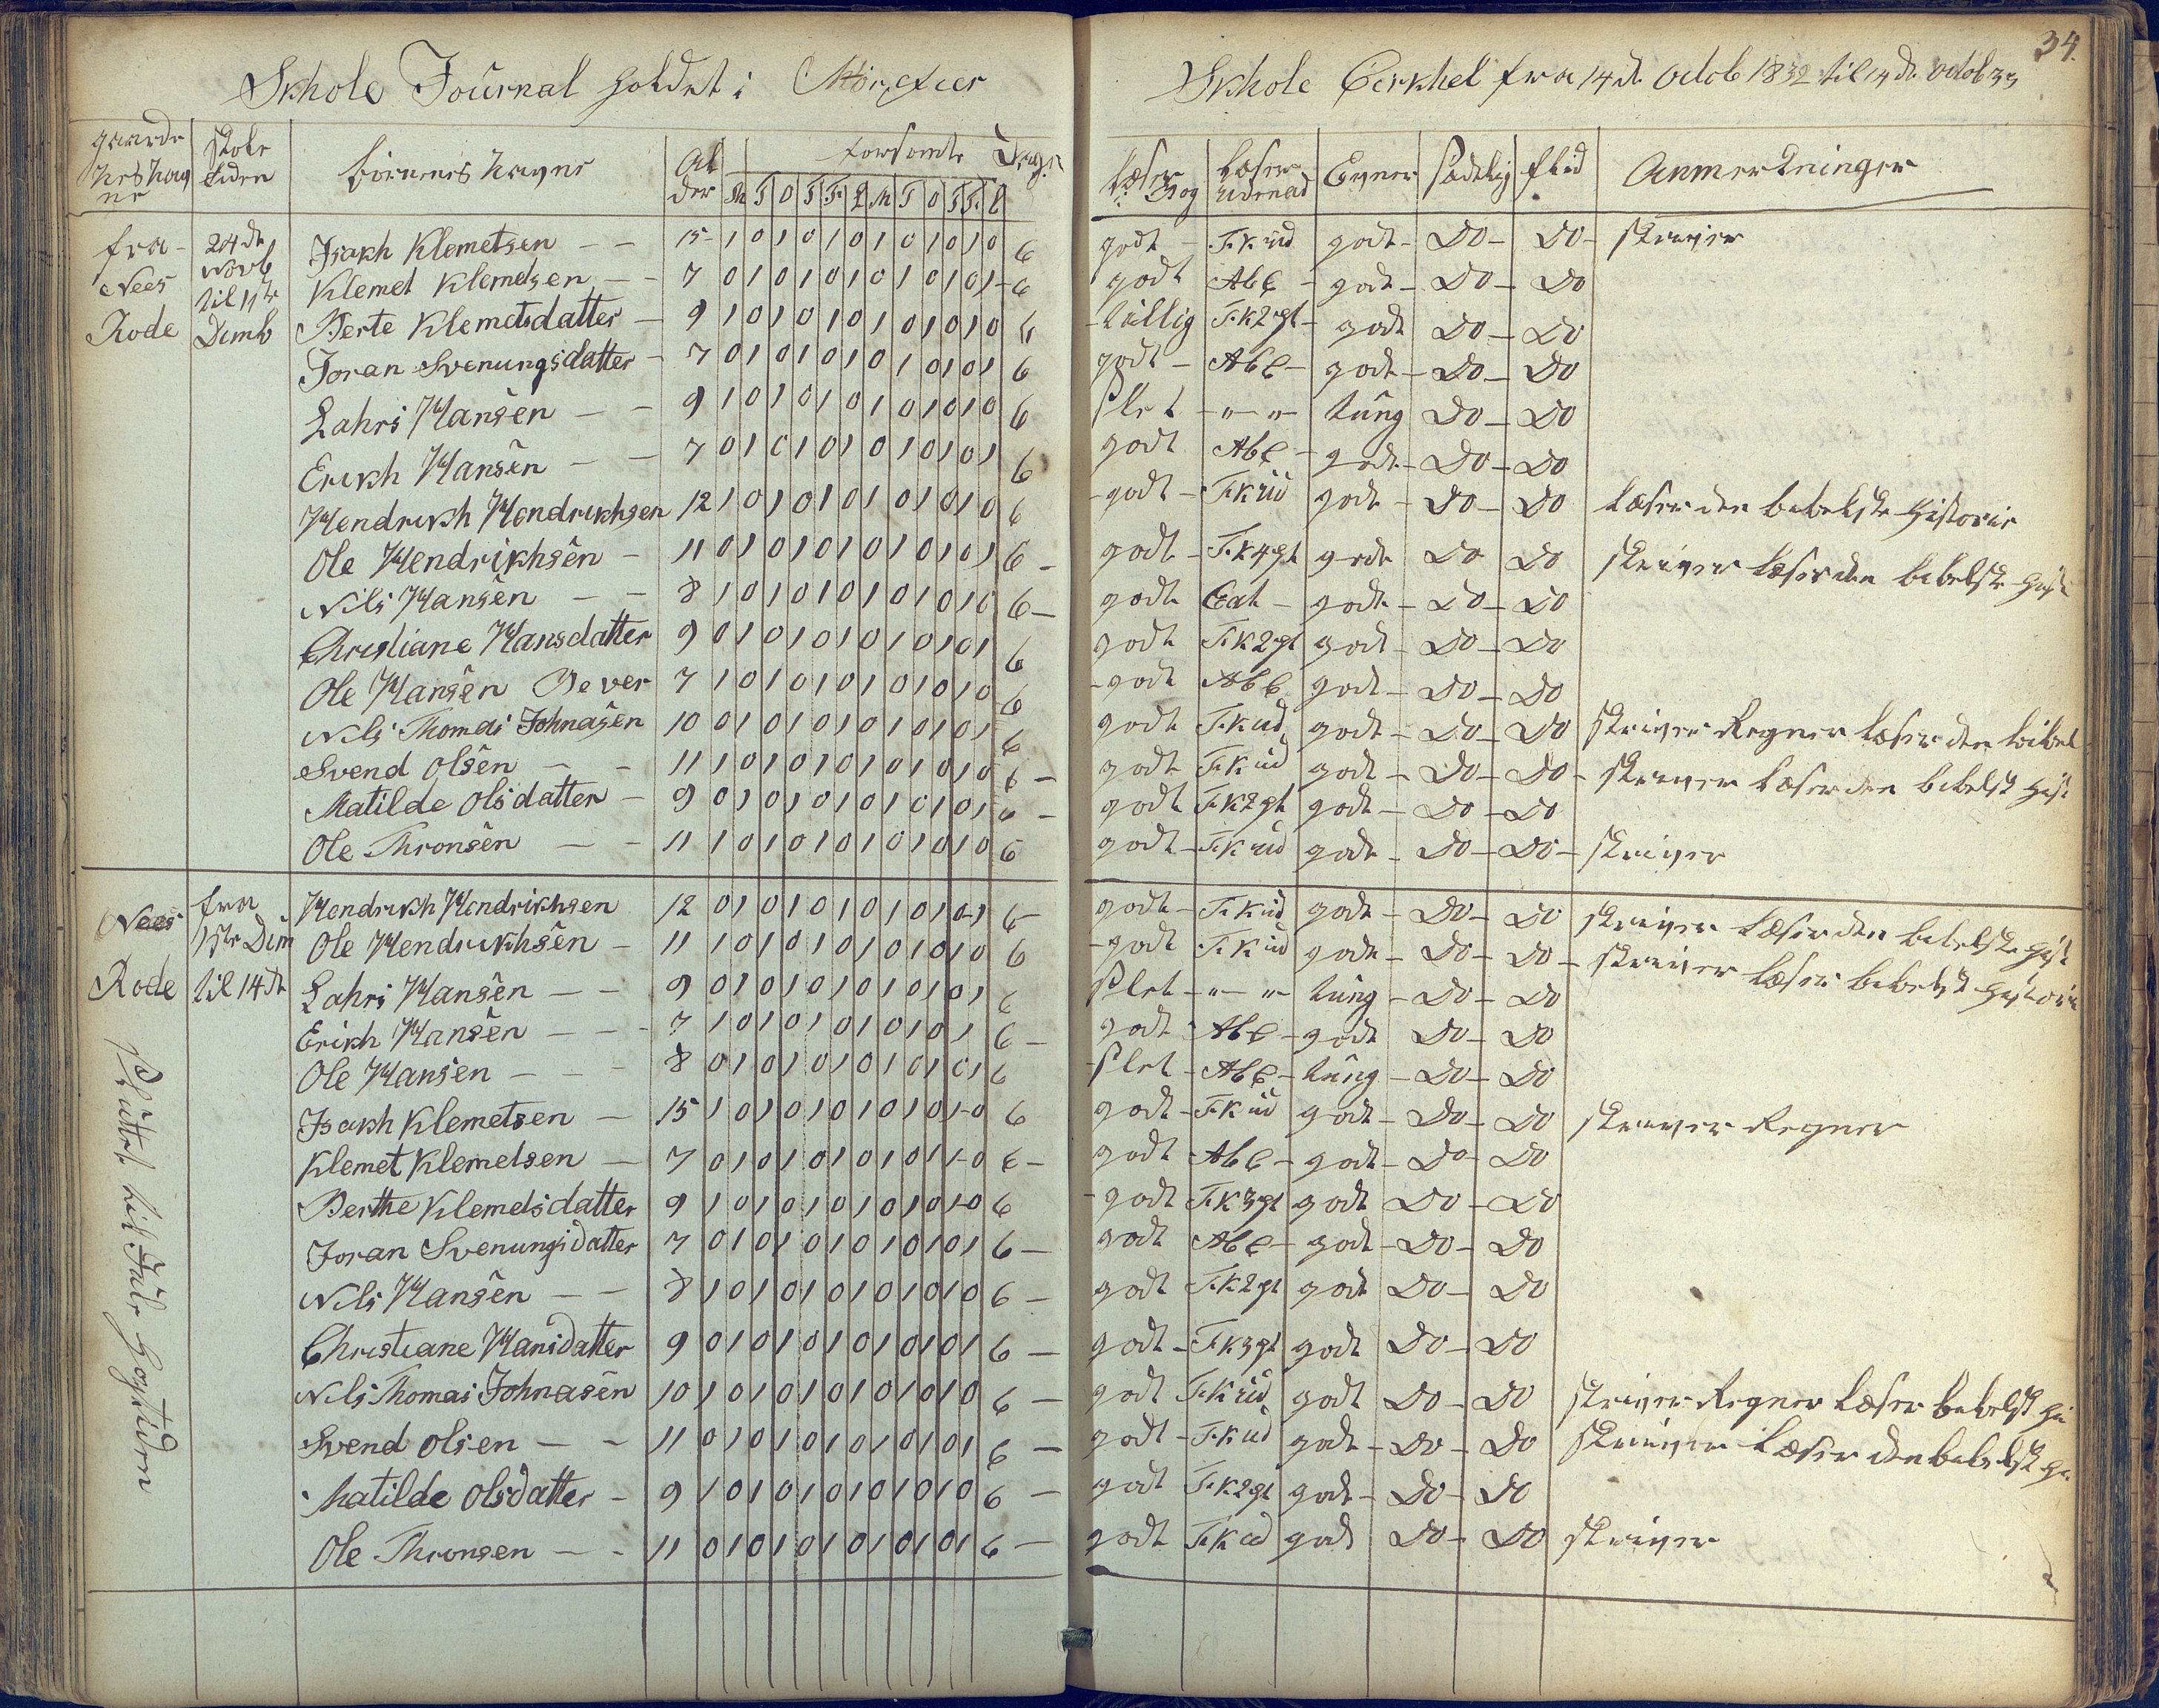 34.
Skhole Journal holdet i Morefeer Skhole Cirkhel fra 14de Octob 1832 til 14de Octob 33
gaarde nes Navne | Skole tiden | börnenes Navne | Al der | forsömte Dage | M T O T Fr L M T O T Fr L | læser i Bog | læser udenad | Evner | sædelig | flid | Anmerkninger
fra Nees Rode | 24de Novb til 1ste Decmb
Isakh Klemetsen – – 15 1 0 1 0 1 0 1 0 1 0 1 0 6 godt Fr.K ud godt – Do – Do – skriver
Klemet Klemetsen – – 7 0 1 0 1 0 1 0 1 0 1 0 1 – 6 godt Abc – godt – Do – Do
Berte Klemetsdatter – 9 1 0 1 0 1 0 1 0 1 0 1 0 6 – tillig Fr.K 2 pt – godt Do – Do
Joran Svenungsdatter – 7 0 1 0 1 0 1 0 1 0 1 0 1 6 godt – Abc – godt – Do – Do
Lahrs Hansen – – 9 1 0 1 0 1 0 1 0 1 0 1 0 6 slet – " – " – tung Do – Do
Erikh Hansen – – 7 0 1 0 1 0 1 0 1 0 1 0 1 6 godt Abc – godt – Do – Do
Hendrikh Hendrikhsen 12 1 0 1 0 1 0 1 0 1 0 1 0 6 – godt – Fr.K ud godt – Do – Do læser den bibelske Historie
Ole Hendrikhsen – 11 0 1 0 1 0 1 0 1 0 1 0 1 6 – godt – Fr.K 4 pt godt Do Do skriver læser den bibelske Hist
Nils Hansen – – 8 1 0 1 0 1 0 1 0 1 0 1 0 6 – godt Cat – godt – Do – Do
Christiane Hansdatter 9 0 1 0 1 0 1 0 1 0 1 0 1 6 godt Fr.K 2 pt godt – Do – Do
Ole Hansen Bever 7 1 0 1 0 1 0 1 0 1 0 1 0 6 – godt Abc godt – Do – Do
Nils Thomas Johnasen 10 0 1 0 1 0 1 0 1 0 1 0 1 6 godt Fr.K ud godt – Do – Do skriver Regner læser den bibel
Svend Olsen – – 11 1 0 1 0 1 0 1 0 1 0 1 0 6 – godt Fr.K ud godt – Do – Do – skriver læser den bibelsk Hist
Matilde Olsdatter – 9 0 1 0 1 0 1 0 1 0 1 0 1 6 – godt Fr.K 2 pt godt – Do – Do
Ole Thronsen – – 11 1 0 1 0 1 0 1 0 1 0 1 0 6 godt – Fr.K ud godt – Do – Do – skriver
Nees Rode | fra 1ste Dcm til 14de
Hendrikh Hendrikhsen 12 0 1 0 1 0 1 0 1 0 1 0 1 6 – godt – Fr.K ud godt – Do – Do skriver læser den bibelske Hist
Ole Hendrikhsen – 11 1 0 1 0 1 0 1 0 1 0 1 0 6 – godt Fr.K ud godt – Do – Do – skriver læser bibelsk Historie
Lahrs Hansen – – 9 0 1 0 1 0 1 0 1 0 1 0 1 6 slet – " – " – tung – Do – Do
Erikh Hansen – – – 7 1 0 1 0 1 0 1 0 1 0 1 6 – godt Abc – godt Do – Do
Ole Hansen – – – 8 0 1 0 1 0 1 0 1 0 1 0 1 6 slet – Abc – tung – Do – Do
Isakh Klemetsen – 15 1 0 1 0 1 0 1 0 1 0 1 0 6 godt – Fr.K ud godt – Do – Do skriver Regner
Klemet Klemetsen – 7 0 1 0 1 0 1 0 1 0 1 1 0 6 – godt – Abc – godt – Do – Do
Berthe Klemetsdatter 9 1 0 1 0 1 0 1 0 1 0 1 0 6 – godt Fr.K 3 pt godt Do – Do
Joran Svenungsdatter 7 0 1 0 1 0 1 0 1 0 1 0 1 6 – godt Abc – godt – Do – Do
Nils Hansen – – 8 1 0 1 0 1 0 1 0 1 0 1 0 6 – godt Fr.K 2 pt godt Do – Do
Christiane Hansdatter 9 0 1 0 1 0 1 0 1 0 1 0 1 6 – godt – Fr.K 3 pt godt Do – Do
Nils Thomas Johnasen 10 1 0 1 0 1 0 1 0 1 0 1 0 6 – godt Fr.K ud godt Do – Do skriver Regner læser bibelsk Hi
Svend Olsen – – 11 0 1 0 1 0 1 0 1 0 1 0 1 6 – godt – Fr.K ud godt – Do – Do skriver læser den bibelsk Hi
Matilde Olsdatter – 9 1 0 1 0 1 0 1 0 1 0 1 0 6 – godt Fr.K 2 pt godt – Do – Do
Ole Thronsen – – 11 0 1 0 1 0 1 0 1 0 1 0 1 6 – godt Fr.K ud godt Do – Do skriver
Sluttet til Jule Høytiden